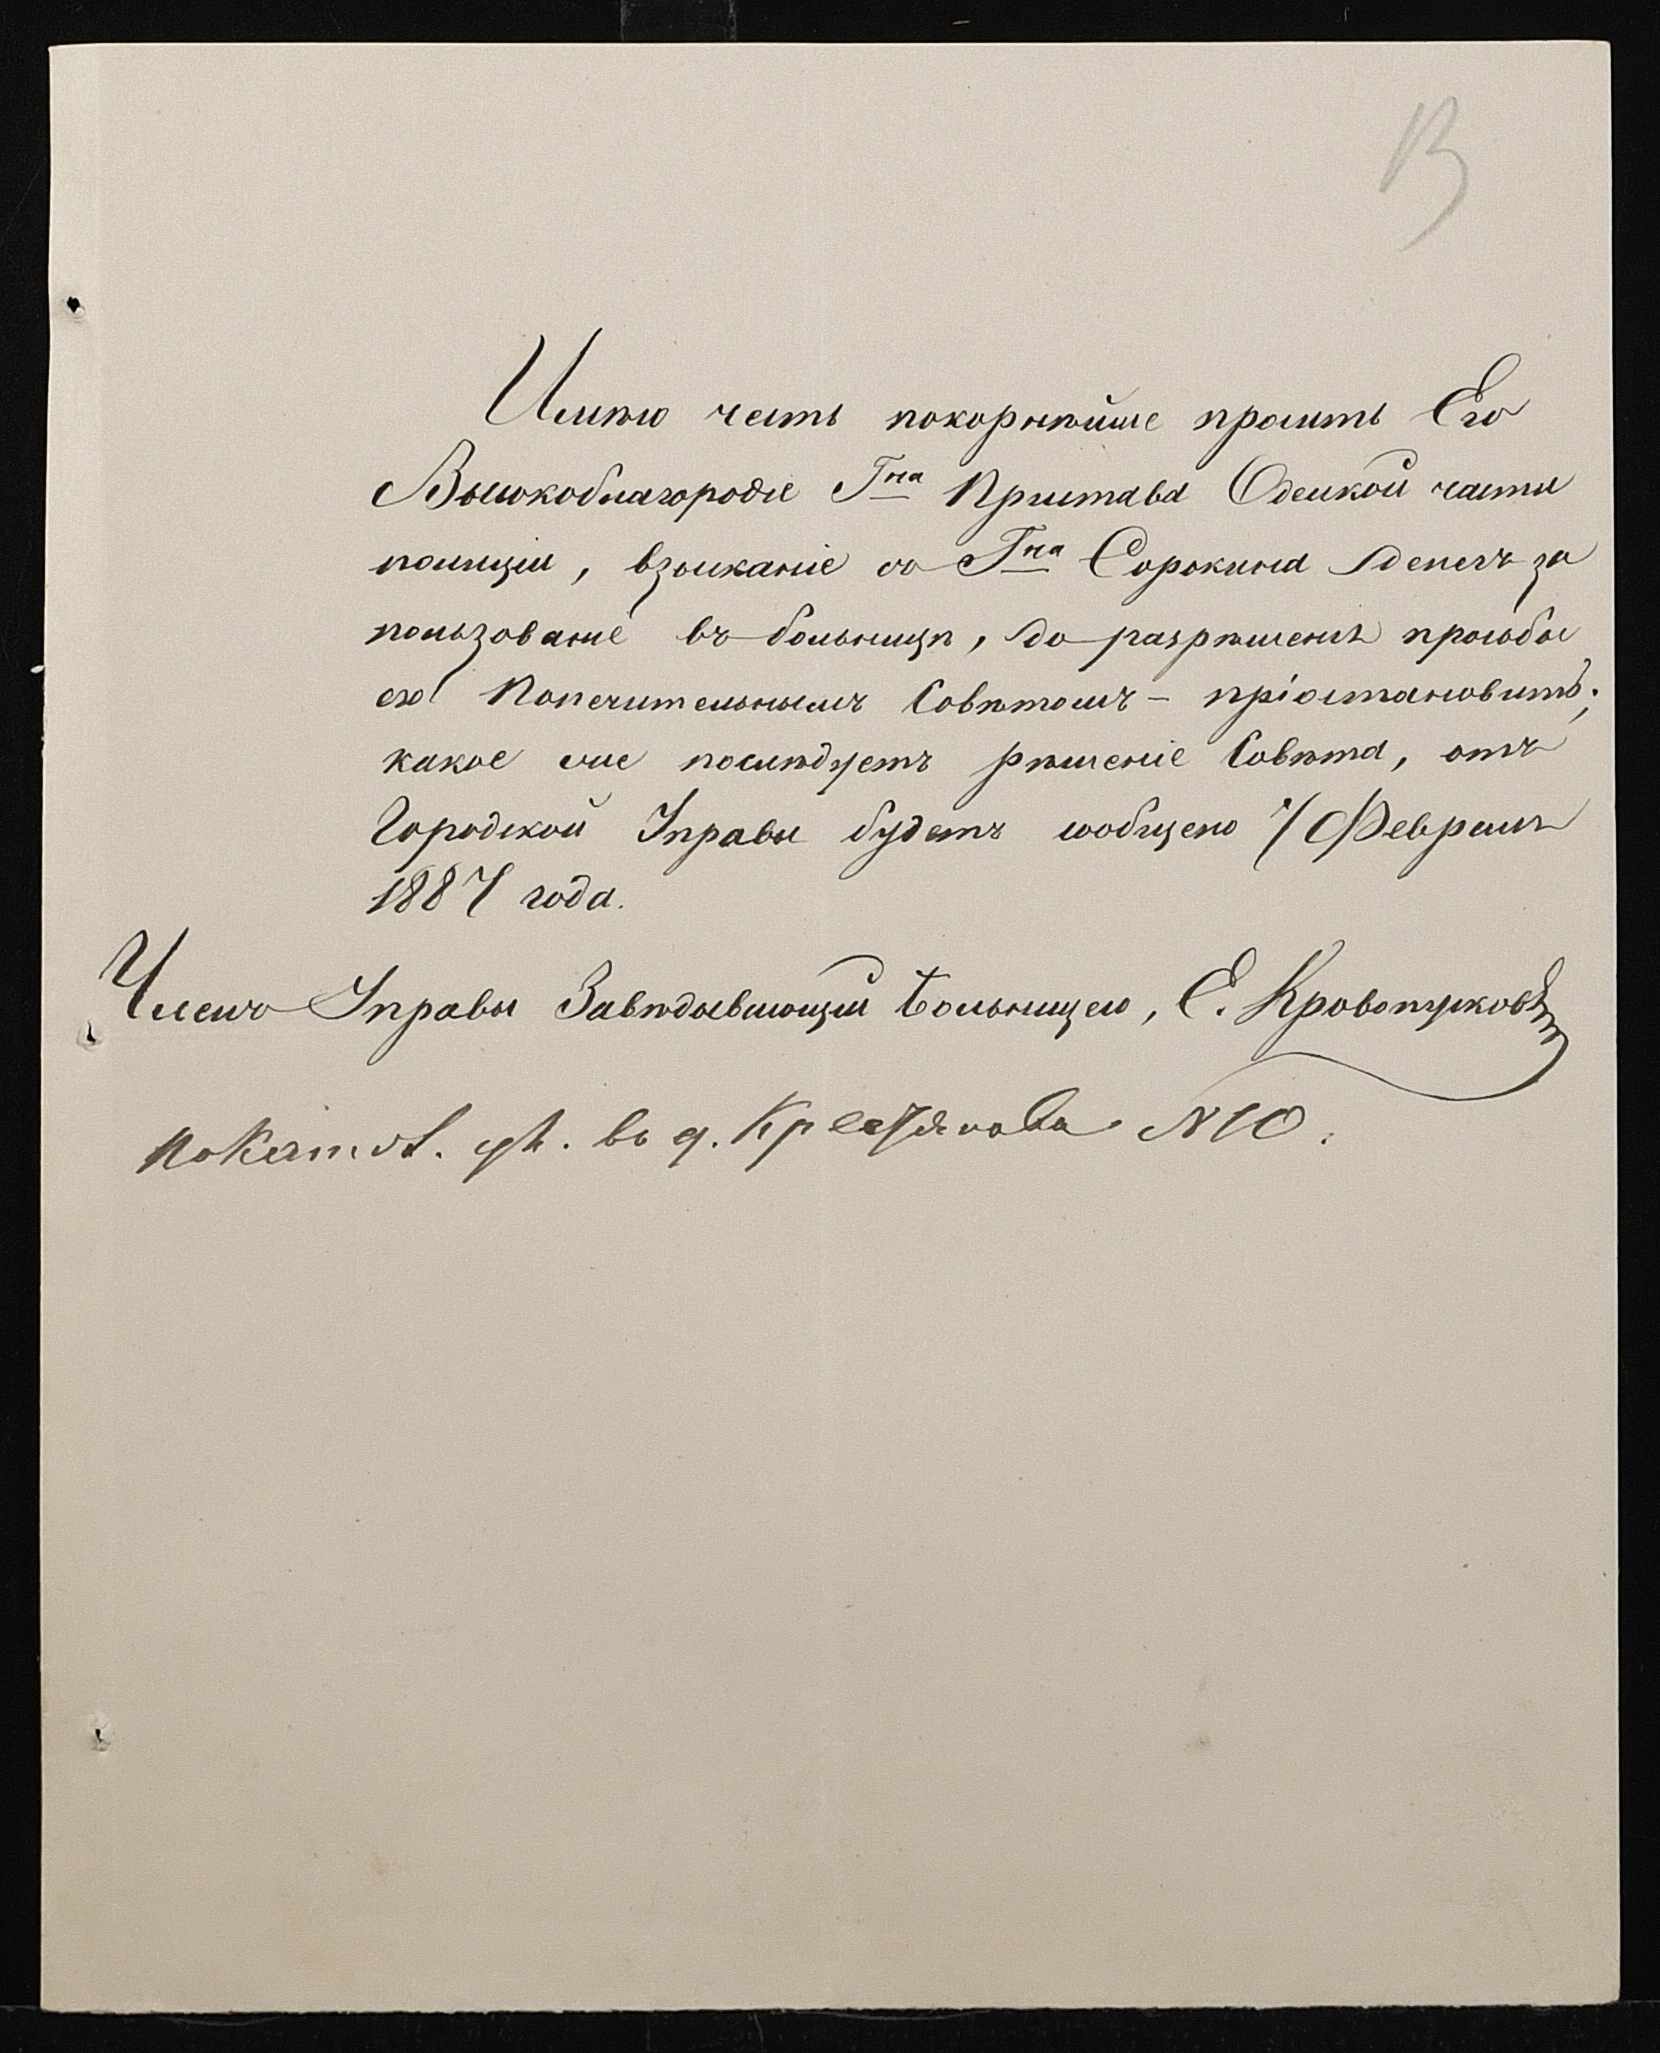 В
Имѣю честь покорнѣйше просить Его
Высокоблагородіе Гна Пристава Одесской части
полиціи, взысканіе съ Гна Сорокина денегъ за
пользованіе въ больницѣ, до разрѣшенія просьбы
его Попечительнымъ Совѣтомъ – пріостановить;
какое же послѣдуетъ рѣшеніе Совѣта, отъ
Городской Управы будетъ сообщено 7 Февраля
1887 года.
Членъ Управы Завѣдывающій Больницею, Е. Кровопусковъ
въ д. № 10.